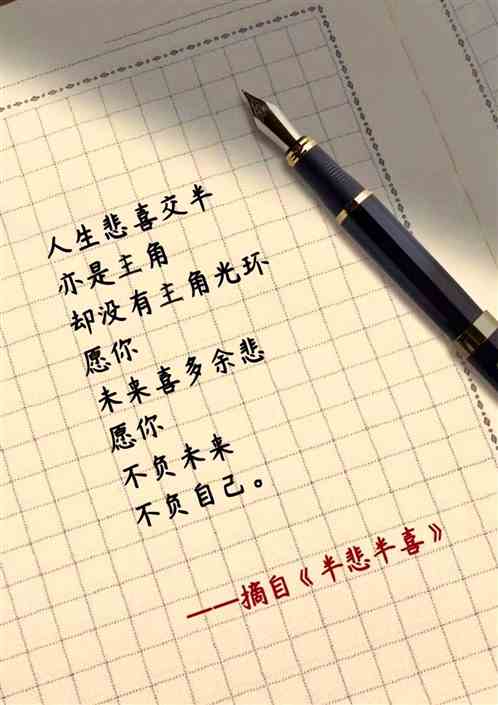 人生悲喜交半
亦是主角
却没有主角光环
愿你
未来喜多余悲
愿你
不负未来
不负自己。
——摘自《半悲半喜》